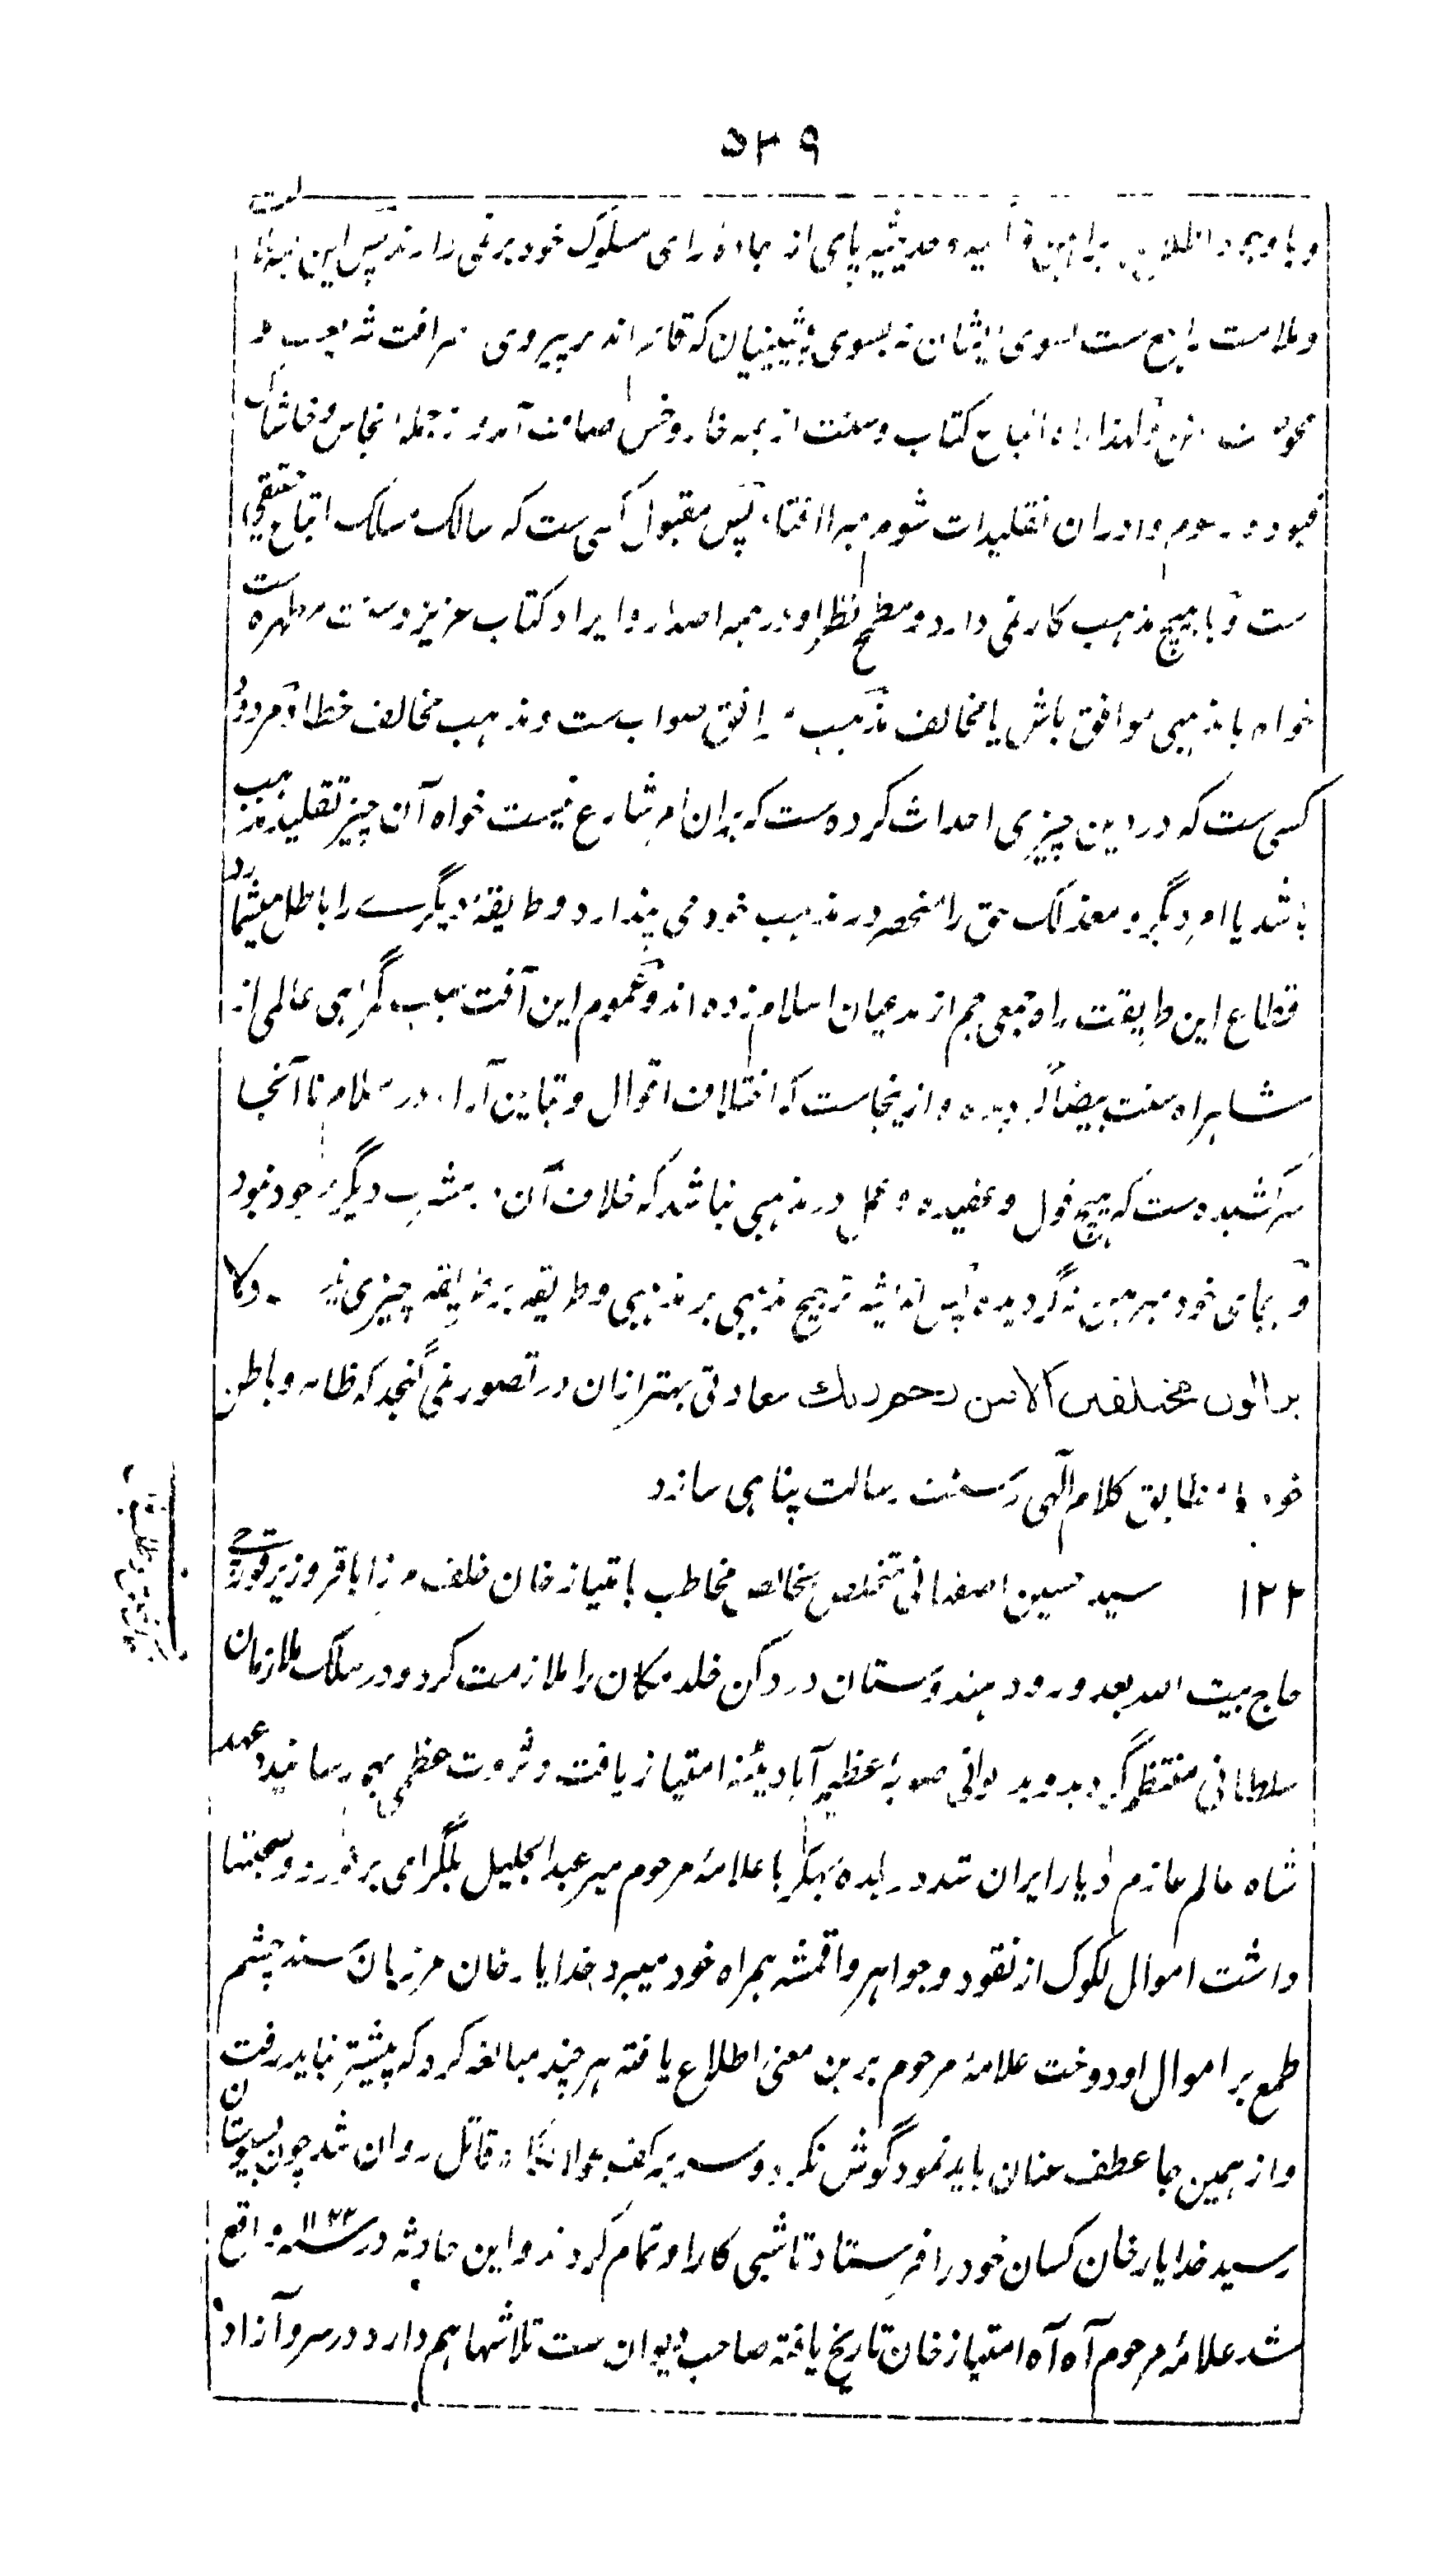 ۵۳۹
و باوجود اطلاع بر براهین و حدیثیه پای از جادهٔ رای مسلوک خود بر نمی دارند پس این
و ملامت راجع ست بسوی ایشان نه بسوی پیشینیان که قائد اند در پیروی
و لهذا راه اتباع کتاب و سنت از همه خار و خس صاف آمده و از جمله انجاس و خاشاک
قیود و رسوم و ادران تقلیدات شوم مبرا افتاد پس مقبول کسی ست که سالک مسلک اتباع حقیقی
ست و با هیچ مذهب کار نمی دارد و مطمح نظر او در همه اصدار و ایراد کتاب عزیز و سنت مطهره ست
خواه با مذهبی موافق باش یا مخالف مذهب موافق صواب ست و مذهب مخالف خطا و مردود
کسی ست که در دین چیزی احداث کرده ست که بران امر شارع نیست خواه آن چیز تقلید مذهب
باشد یا امر دیگر و معذلک حق را منحصر در مذهب خود می پندارد و طریقهٔ دیگرے را باطل میشمارد
قطاع این طریقت راه جمعی جم از مدعیان اسلام زده اند و عموم این آفت سبب گمراهی عالمی از
شاهراه سنت بیضا گردیده و ازینجاست که اختلاف اقوال و تباین آراء در اسلام تا آنجا
سر کشیده ست که هیچ قول و عقیده و عمل در مذهبی نباشد که خلاف آن در مشرب دیگر موجود نبود
و بجای خود مبرهن نه گردیده پس اندیشهٔ ترجیح مذهبی بر مذهبی و طریقه بر طریقه چیزی نیست ولا
یزالون مختلفین الا من رحم ربک سعادتی بهتر ازان در تصور نمی گنجد که ظاهر و باطن
خود را مطابق کلام الٰهی و سنت رسالت پناهی سازد
۱۲۲ سید حسین اصفهانی متخلص بخالص مخاطب بامتیاز خان خلف مرزا باقر وزیر قورچی
حاج بیت الله بعد ورود هندوستان در دکن خلد مکان را ملازمت کرد و در سلک ملازمان
سلطانی منتظم گردید و بدیوانی صوبهٔ عظیم آباد پٹنه امتیاز یافت و ثروت عظمی بهم رسانید در عهد
شاه عالم عازم دیار ایران شد در بلدهٔ بهکر با علامهٔ مرحوم میر عبدالجلیل بلگرامی برخورد و صحبتها
داشت اموال لکوک از نقود و جواهر و اقمشه همراه خود میبرد خدایار خان مرزبان سند چشم
طمع بر اموال او دوخت علامهٔ مرحوم برین معنی اطلاع یافته هر چند مبالغه کرد که پیشتر نباید رفت
و از همین جا عطف عنان باید نمود گوش نکرد و سر به کف بجولانگاه قاتل روان شد چون بسیوستان
رسید خدایار خان کسان خود را فرستاد تا شبی کار او تمام کردند و این حادثه در سنه ۱۱۲۲ واقع
شد علامهٔ مرحوم آه آه امتیاز خان تاریخ یافته صاحب دیوان ست تلاشها هم دارد در سرو آزاد